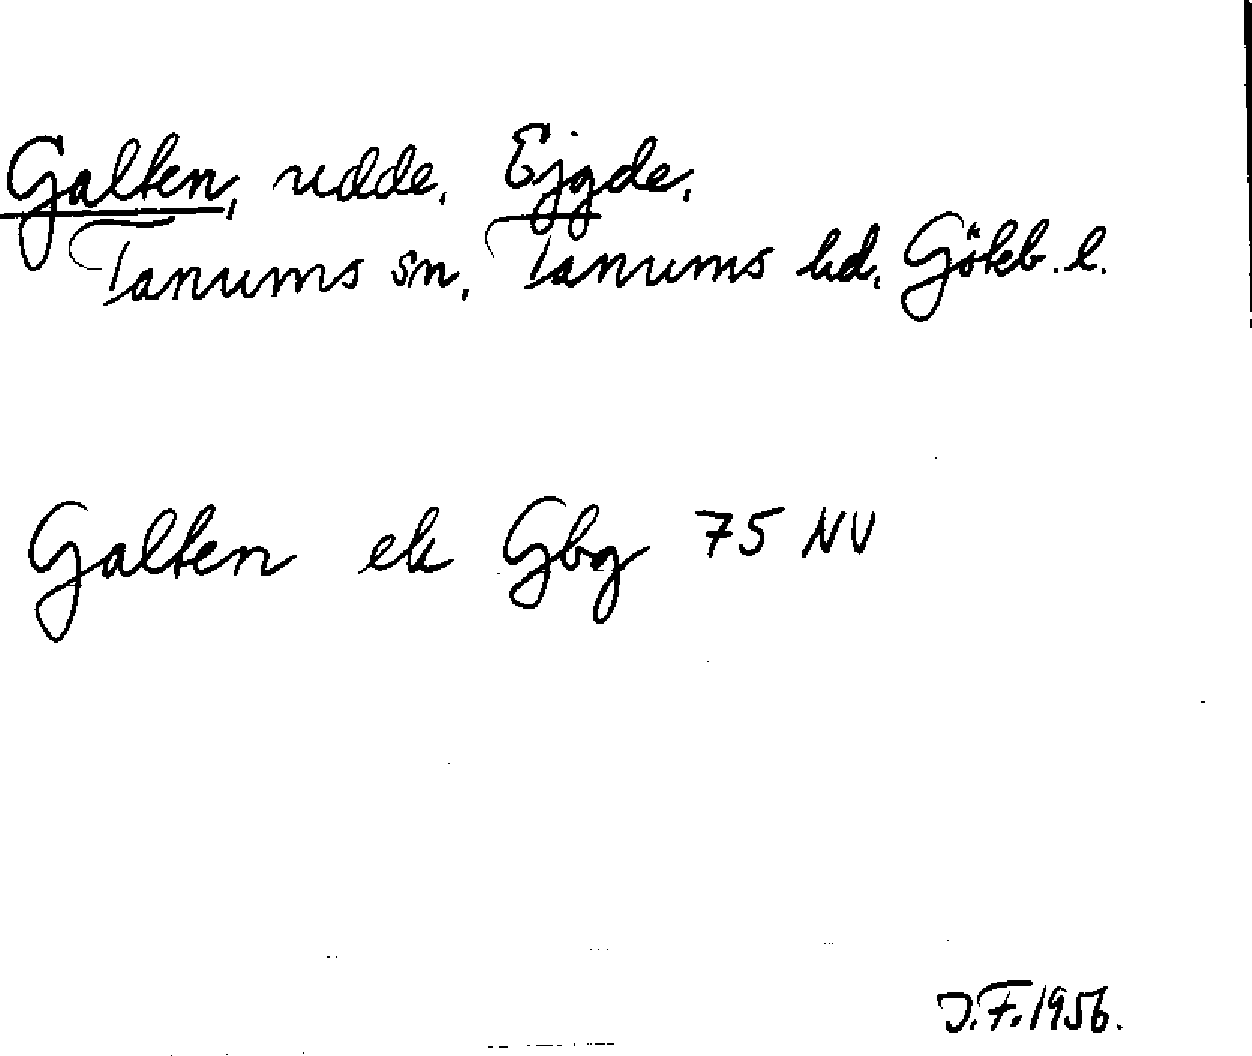 Galten, udde, Ejgde,
Tanums sn, Tanums hd, Gökb. l.
Galten ek Gbg 75 NV
J.F. 1956.